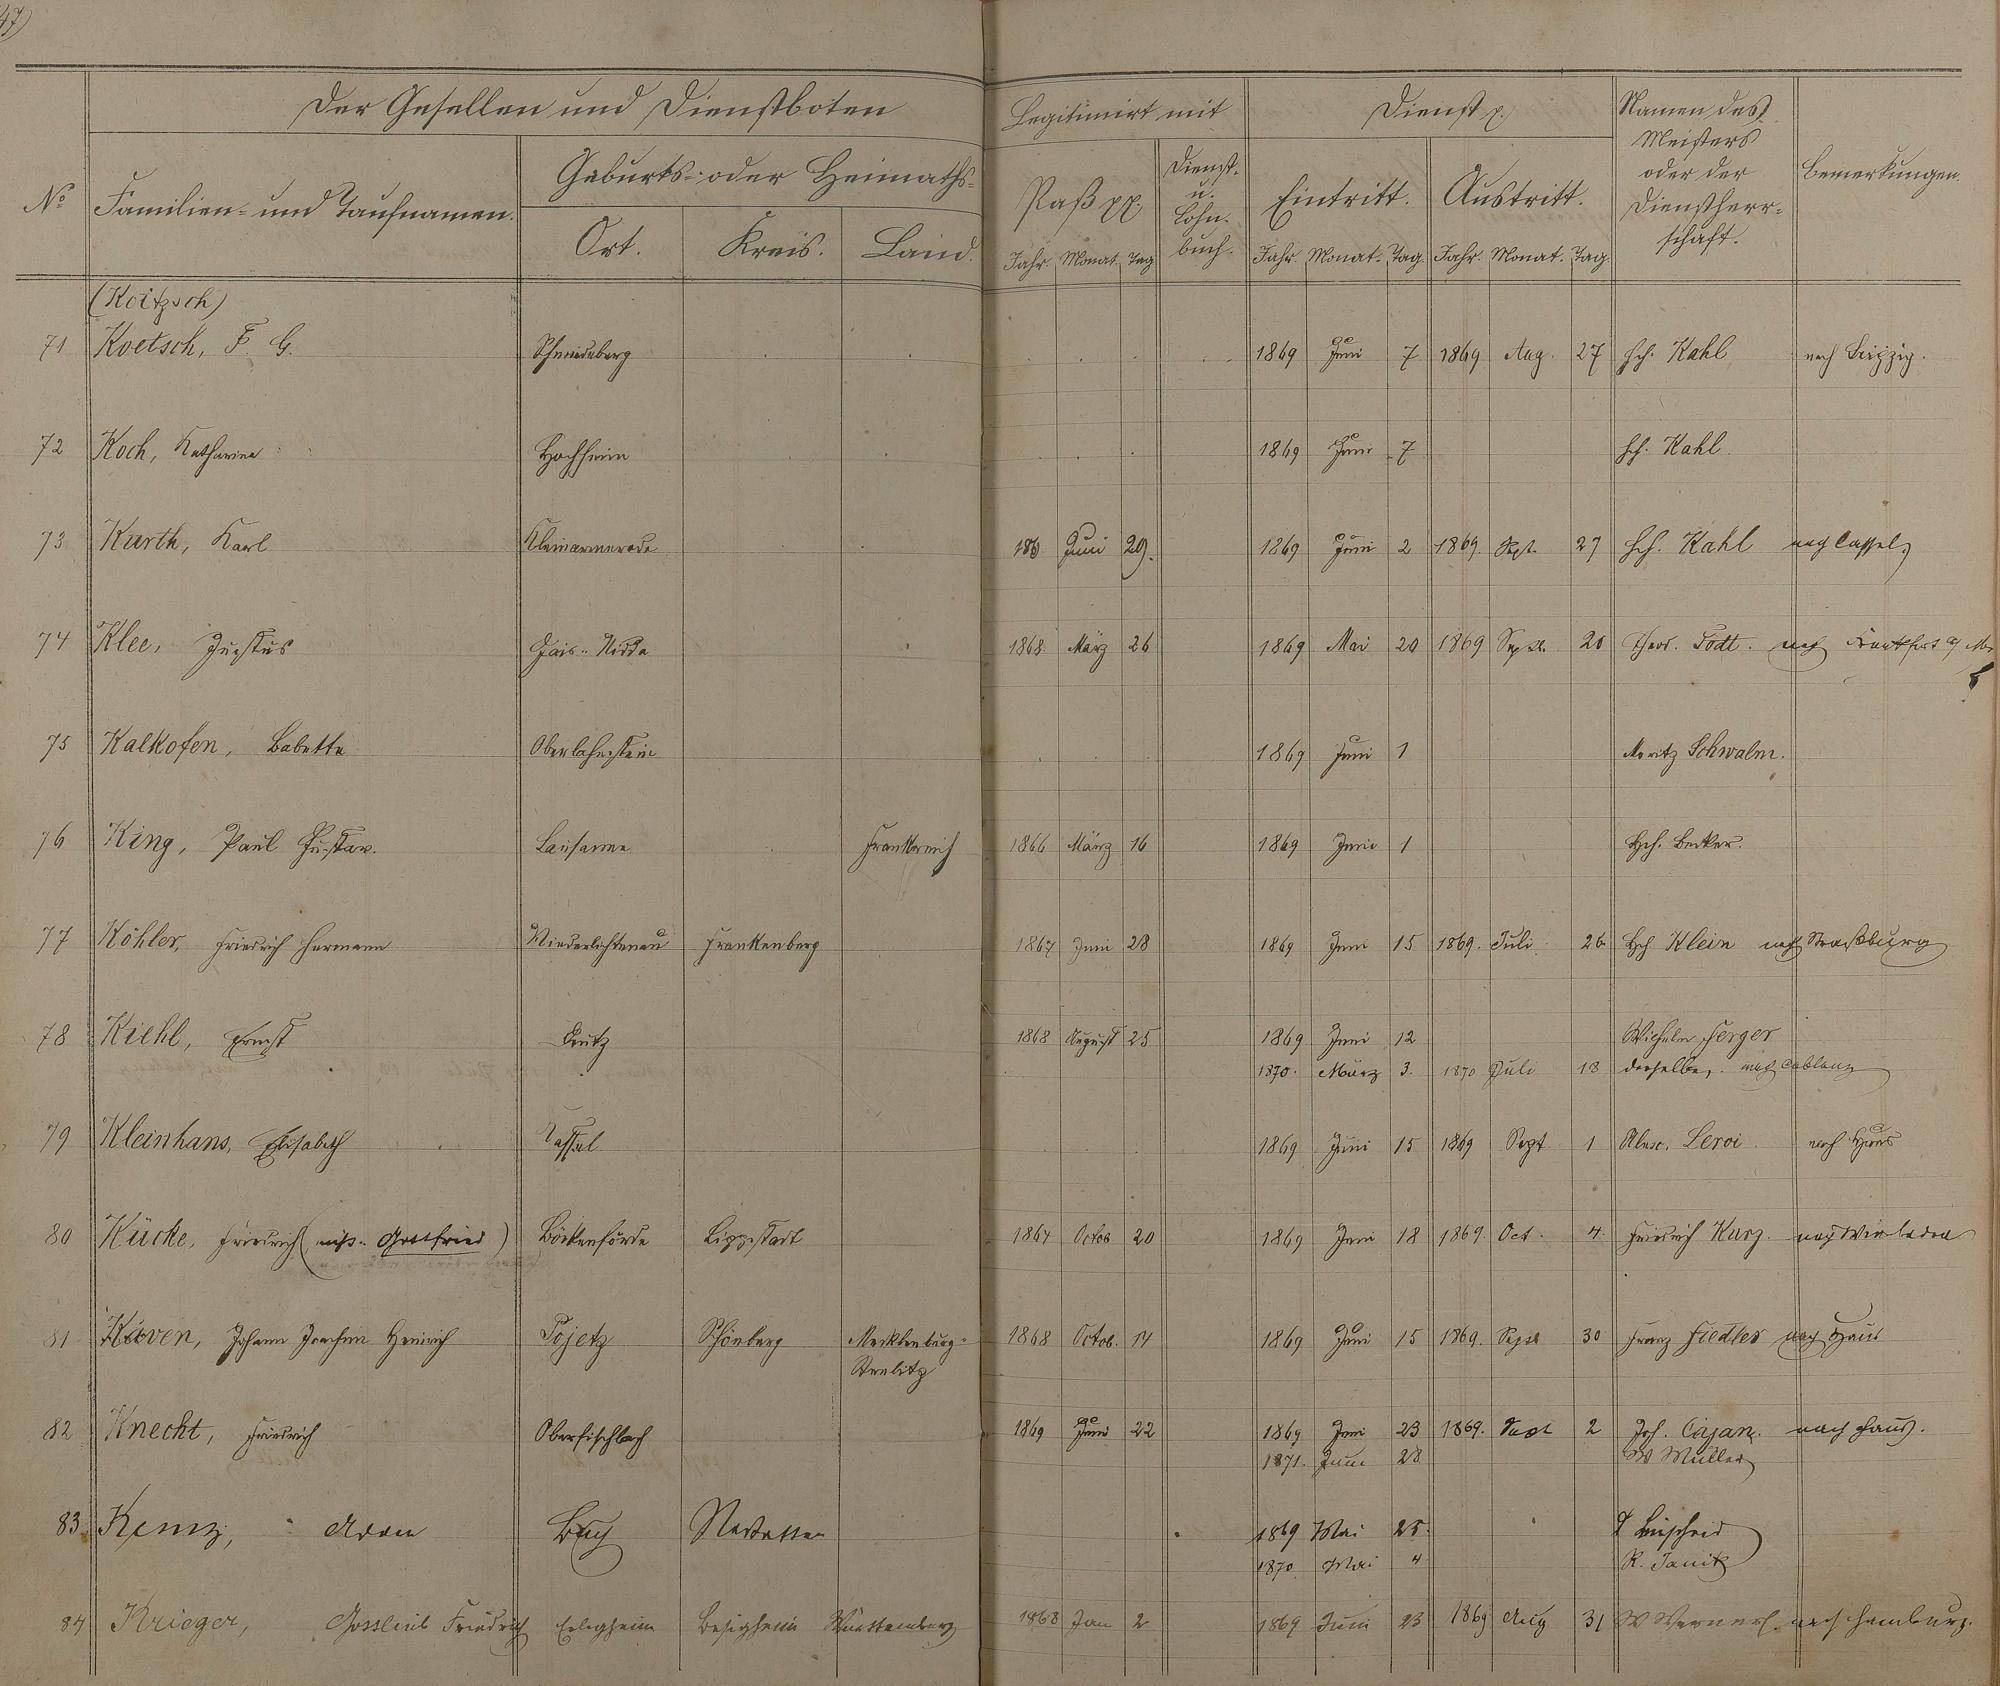 47)
Der Gesellen und Dienstboten
Legitimirt mit
Dienst p.
Namen des Meisters oder der Dienstherrschaft.
Bemerkungen.
No
Familien- und Taufnamen.
Geburts- oder Heimaths-
Ort. Kreis. Land.
Paß pp.
Dienst- u. Lohn-buch.
Eintritt. Austritt.
Jahr. Monat. Tag Jahr. Monat. Tag Jahr. Monat. Tag.
(Koitzsch)
71 Koetsch, F. G. Schmiedeberg 1869 Juni 7 1869 Aug. 27 Hch. Kahl nach Leipzig.
72 Koch, Katharina Hochheim 1869 Juni 7 Hch. Kahl.
73 Kurth, Karl Kleinalmerode Juni 29. 1869 Juni 2 1869. Sept. 27 Hch. Kahl nach Cassel
74 Klee, Justus Nidda 1868. März 26 1869 Mai 20 1869 Sept. 20 Theod. Todt. nach Frankfurt a/M.
75 Kalkofen, Babette Oberlahnstein 1869 Juni 1 Moritz Schwalm.
76 King, Paul Gustav. Lausanne Frankreich 1866 März 16 1869 Juni 1 Hch. Becker.
77 Köhler, Friedrich Hermann Niederlichtenau Frankenberg 1867 Juni 28 1869 Juni 15 1869. Juli 26 Hch Klein nach Straßburg
78 Kiehl, Ernst Deutz 1868 August 25 1869 Juni 12 Wilhelm Ferger
1870. März 3. 1870 Juli 18 derselbe, nach Coblenz
79 Kleinhans, Elisabeth Cassel 1869 Juni 15 1869 Sept 1 Alex. Leroi nach Haus
80 Kücke, Friedrich (Gottfried) Böckenförde Lippstadt 1867 Octob 20 1869 Juni 18 1869. Oct. 4. Friedrich Kurz. nach Wiesbaden
81 Käven, Johann Joachim Heinrich Pojetz Schönberg Mecklenburg-
Strelitz 1868 Octob. 14 1869 Juni 15 1869. Sept 30 Franz Fiedler nach Haus
82 Knecht, Friedrich Oberfischbach 1869 Juni 22 1869 Juni 23 1869. Sept 2 Joh. Cajan. nach Haus.
1871. Juni 28 W Müller
83 Kunz, Adam Buch Nastatten 1869 Mai 25. Büscheid
1870. Mai 4 R. Janik
84 Krieger, Gottlieb Friedrich Erligheim Besigheim Württemberg 1868 Jan 2 1869 Juni 23 1869 Aug 31 W Werner. nach Hamburg.